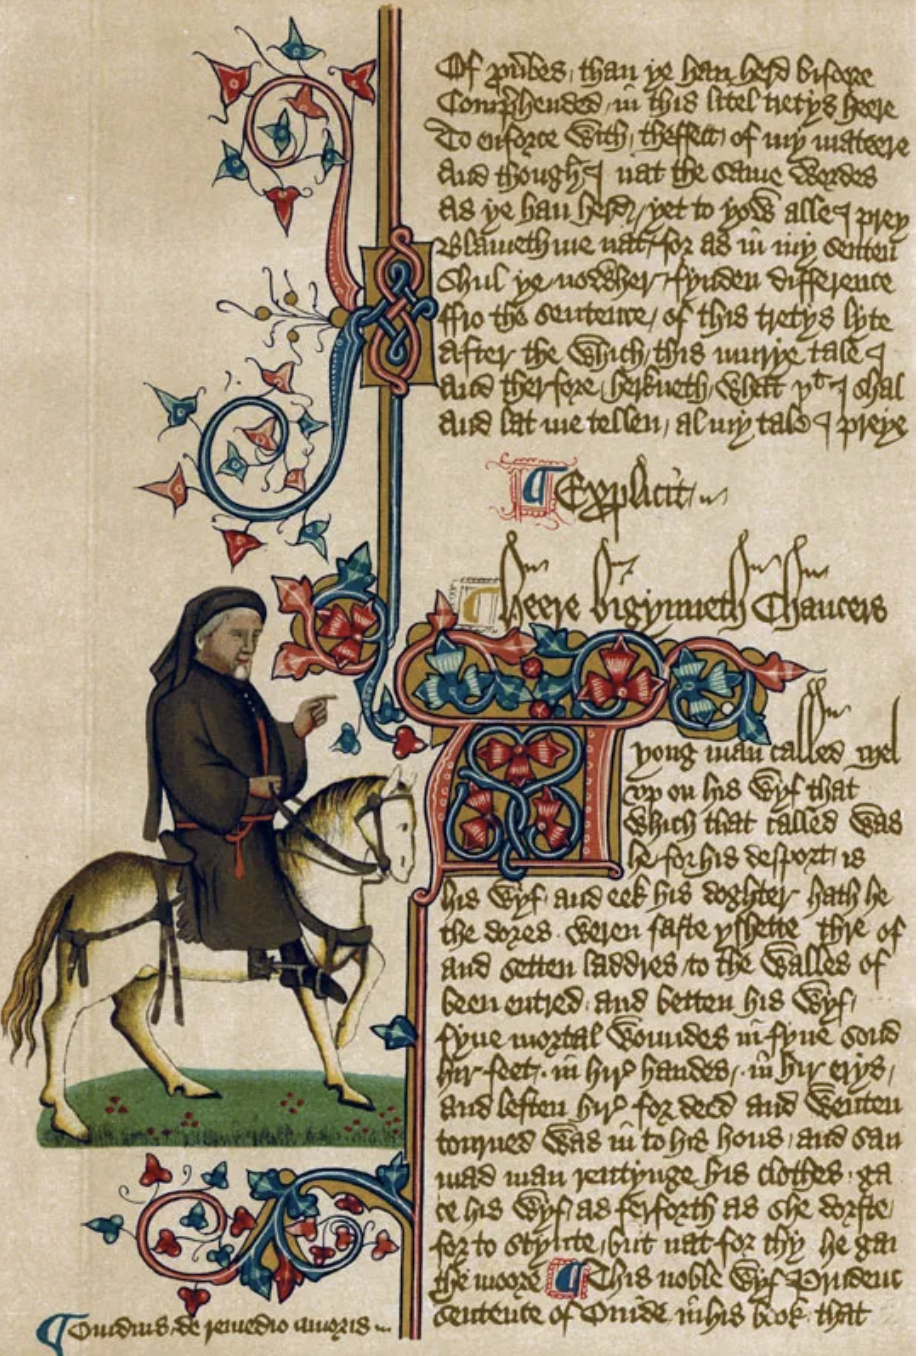 Of prũbes, than ye han herd bifoore
Comprehended, in this litel tretys heere
To enforce with, theffect, of my mateere
And though I nat the same wordes
As ye han herd, yet to yow alle I prey
Blameth me nat, for as in my senten
Shul ye nowher, fynden difference
ffro the sentence, of this tretys lyte
After the which, this murye tale I
And therfore, herkneth, what yt I shal
And lat me tellen, al my tale I preye
¶ Explicit
¶ Heere bigynneth Chaucers
A yong man called Mel
vp on his wyf that
which that called was
he for his desport, is
his wyf, and eek his doghter hath he
the dores weren faste yshette thre of
and setten laddres to the walles of
been entred, and betten his wyf,
fyue mortal woundes in fyue sond
hir feet, in hir handes, in hir erys,
and leften hir for deed and wenten
tourned was in to his hous, and sau
mad man rentynge his clothes, ga
ce his wyf, as ferforth as she dorste,
for to stynte, but nat for thy he gan
the moore ¶ This noble wyf Prudenc
sentence of Ouide, in his book that
¶ Ouidius, de remedio amoris